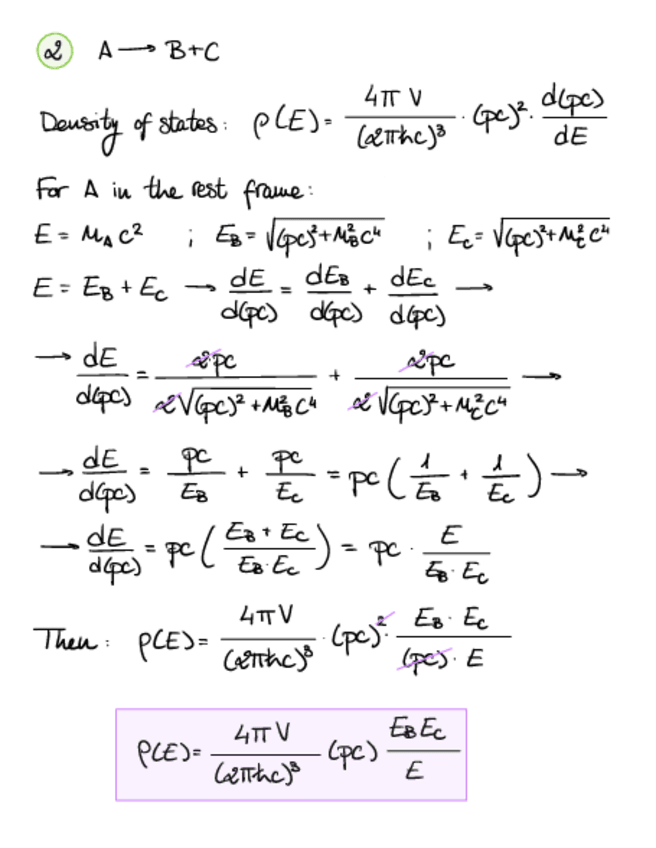 2 A → B+C
Density of states: ρ(E) = 4πV/(2πħc)³ · (pc)² · d(pc)/dE
For A in the rest frame:
E = M_A c² ; E_B = √((pc)² + M_B² c⁴) ; E_C = √((pc)² + M_C² c⁴)
E = E_B + E_C → dE/d(pc) = dE_B/d(pc) + dE_C/d(pc) →
→ dE/d(pc) = 2pc/(2√((pc)² + M_B² c⁴)) + 2pc/(2√((pc)² + M_C² c⁴)) →
→ dE/d(pc) = pc/E_B + pc/E_C = pc (1/E_B + 1/E_C) →
→ dE/d(pc) = pc ((E_B + E_C)/(E_B · E_C)) = pc · E/(E_B · E_C)
Then: ρ(E) = 4πV/(2πħc)³ · (pc)² · E_B · E_C/((pc) · E)
ρ(E) = 4πV/(2πħc)³ (pc) E_B E_C/E